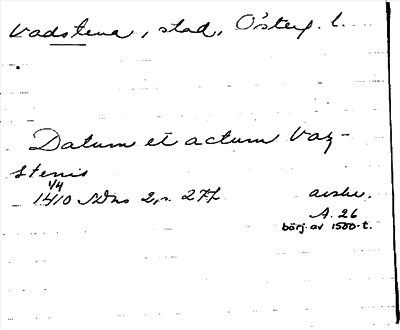 Vadstena, stad, Österg. l.
Datum et actum Vaz-
stenis
1/4
1410 SDns 2, s. 277 avskr.
A. 26
börj. av 1500-t.